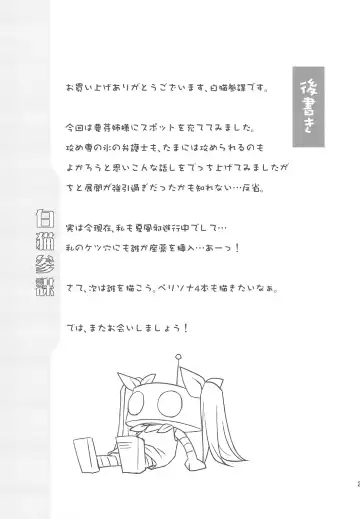 後書き
お買い上げありがとうございます、白猫参謀です。
今回は要芽姉様にスポットを充ててみました。
攻め専の氷の弁護士も、たまには攻められるのも
よかろうと思いこんな話しをでっち上げてみましたが
ちと展開が強引過ぎだったかも知れない…反省。
実は今現在、私も夏風邪進行中でして…
私のケツ穴にも誰が座薬を挿入…あーっ！
さて、次は誰を描こう。ペリソナ4本も描きたいなぁ。
では、またお会いしましょう！
白猫参謀